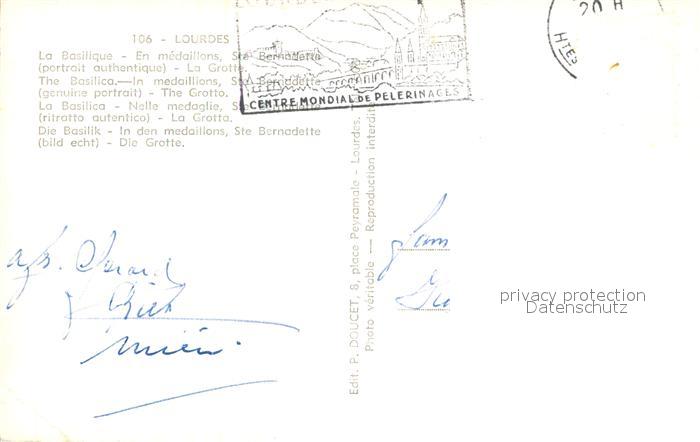 106 - LOURDES
La Basilique - En médaillons, Ste Bernadette
(portrait authentique) - La Grotte.
The Basilica.—In medaillons, Ste Bernadette
(genuine portrait) - The Grotto.
La Basilica - Nelle medaglie, Ste
(ritratto autentico) - La Grotta.
Die Basilik - In den medaillons, Ste Bernadette
(bild echt) - Die Grotte.
CENTRE MONDIAL DE PELERINAGES
20 H
HTES
Edit. P. DOUCET, 8, place Peyramale - Lourdes.
Photo véritable — Reproduction interdite
Fam
privacy protection
Datenschutz